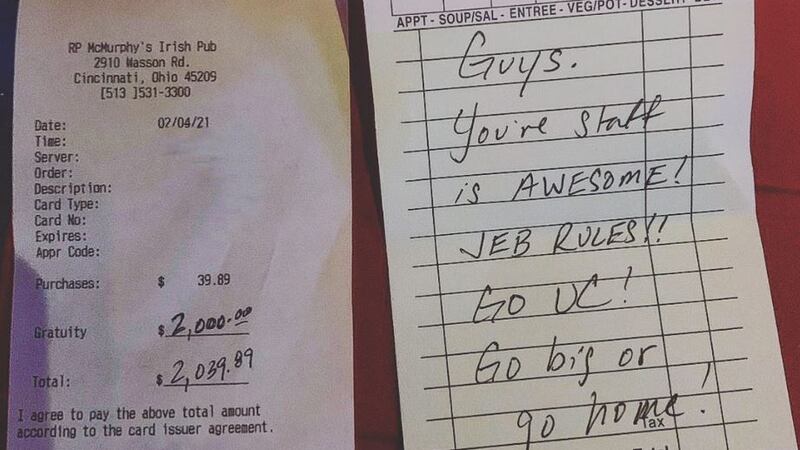 RP McMurphy's Irish Pub
2910 Wasson Rd.
Cincinnati, Ohio 45209
[513 ]531-3300
Date: 02/04/21
Time:
Server:
Order:
Description:
Card Type:
Card No:
Expires:
Appr Code:
Purchases: $ 39.89
Gratuity $ 2,000.00
Total: $ 2,039.89
I agree to pay the above total amount
according to the card issuer agreement.
APPT - SOUP/SAL - ENTREE - VEG/POT - DESSERT
Guys.
You're staff
is AWESOME!
JEB RULES!!
Go UC!
Go big or
go home!
Tax